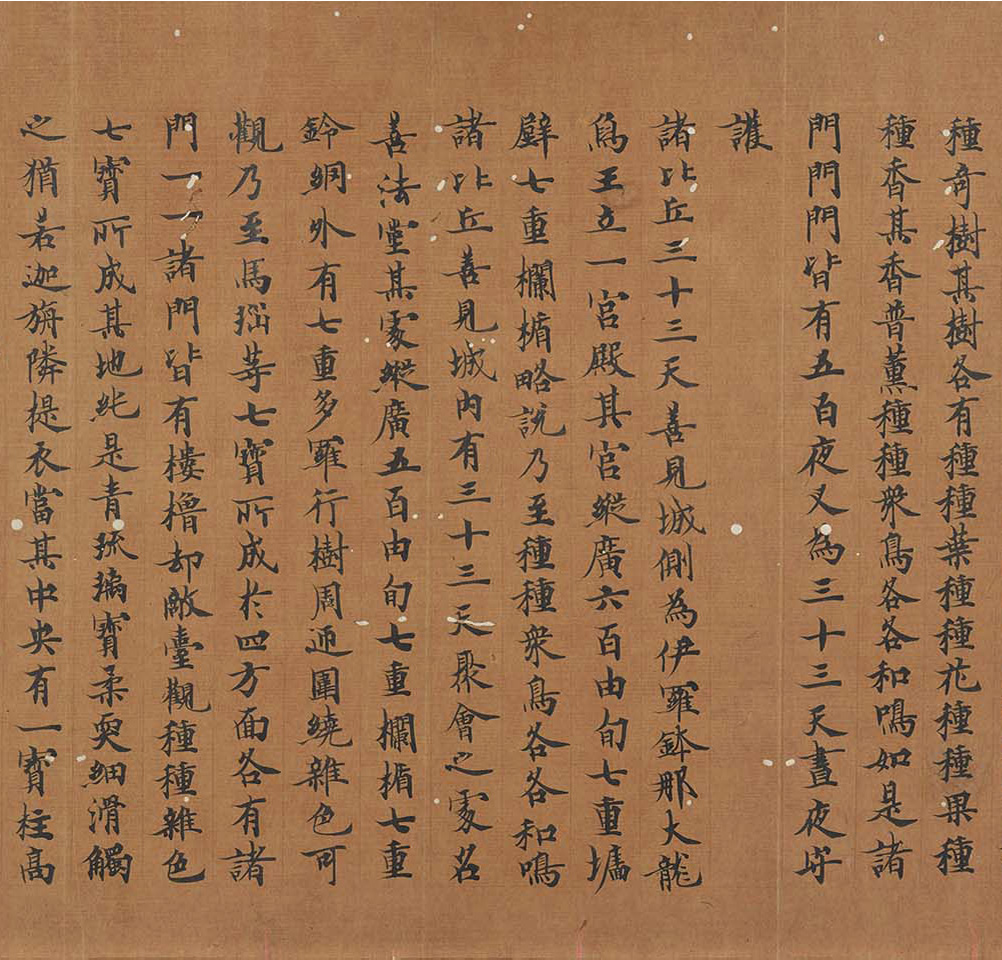 種奇樹其樹各有種種葉種種花種種果種
種香其香普薰種種衆鳥各各和鳴如是諸
門門門皆有五百夜叉為三十三天晝夜守
護
諸比丘三十三天善見城側為伊羅鉢那大龍
鳥王立一宮殿其宮縱廣六百由旬七重墻
壁七重欄楯略說乃至種種衆鳥各各和鳴
諸比丘善見城內有三十三天聚會之處名
善法堂其處縱廣五百由旬七重欄楯七重
鈴網外有七重多羅行樹周迊圍繞雜色可
觀乃至馬瑙等七寶所成於四方面各有諸
門一一諸門皆有樓櫓却敵臺觀種種雜色
七寶所成其地純是青琉璃寶柔耎細滑觸
之猶若迦旃隣提衣當其中央有一寶柱高